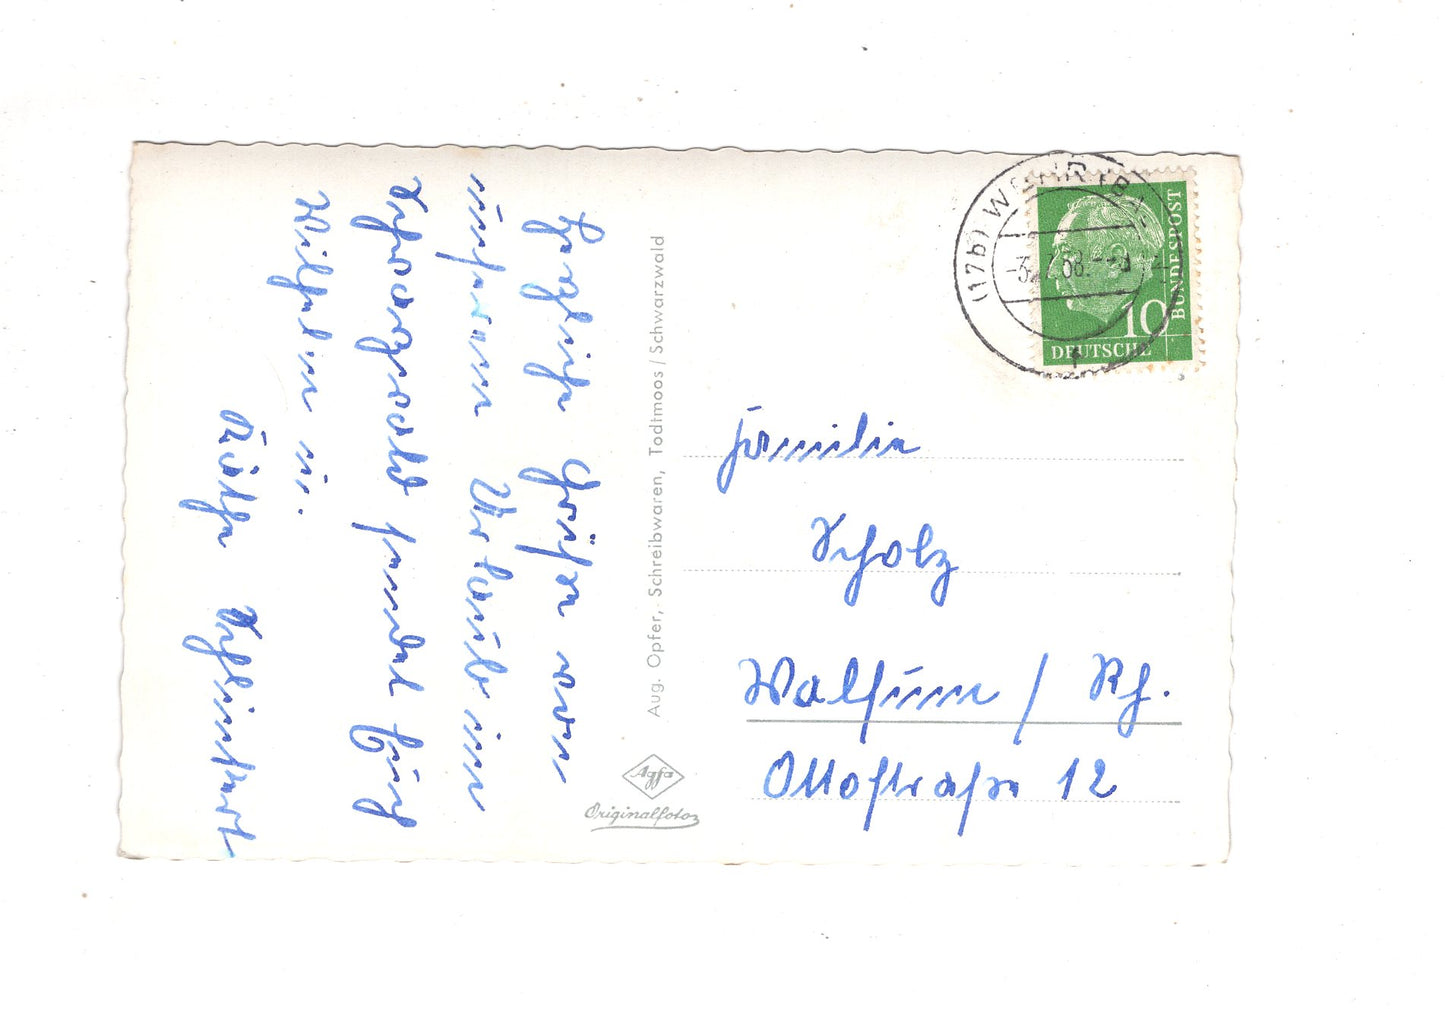 Herzliche Grüße von
unserem Urlaub im
Schwarzwald sendet Euch
Wilhelm u.
Käthe
Aug. Opfer, Schreibwaren, Todtmoos / Schwarzwald
Agfa
Originalfoto
(17b) WEHR (BA
-3.7.58.
10
DEUTSCHE
BUNDESPOST
Familie
Scholz
Walsum / Rh.
Ottostraße 12